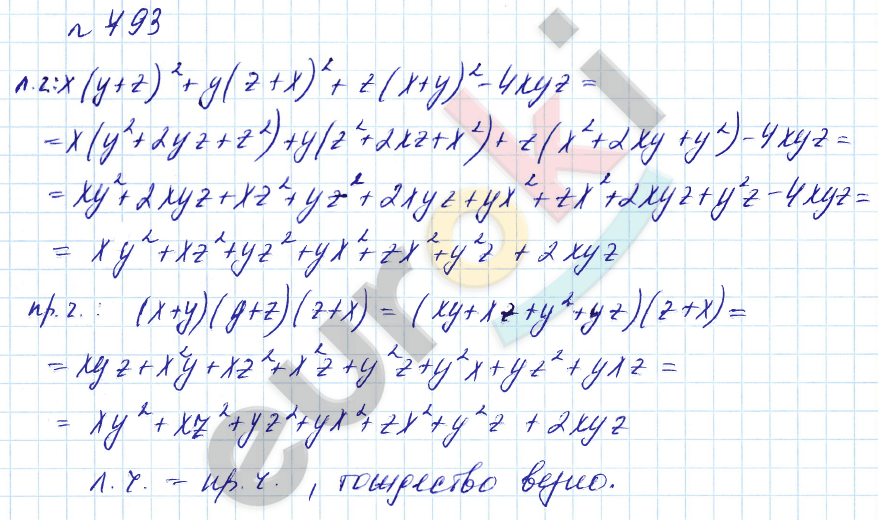 n 793
л.г: x(y+z)²+y(z+x)²+z(x+y)²-4xyz=
=x(y²+2yz+z²)+y(z²+2xz+x²)+z(x²+2xy+y²)-4xyz=
=xy²+2xyz+xz²+yz²+2xyz+yx²+zx²+2xyz+y²z-4xyz=
= xy²+xz²+yz²+yx²+zx²+y²z + 2xyz
пр.г.: (x+y)(y+z)(z+x)=(xy+xz+y²+yz)(z+x)=
=xyz+x²y+xz²+x²z+y²z+y²x+yz²+yxz=
= xy²+xz²+yz²+yx²+zx²+y²z + 2xyz
л.ч. = пр.ч., тождество верно.
euroki